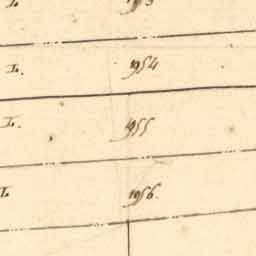 I. 1954
I. 1955
I. 1956.